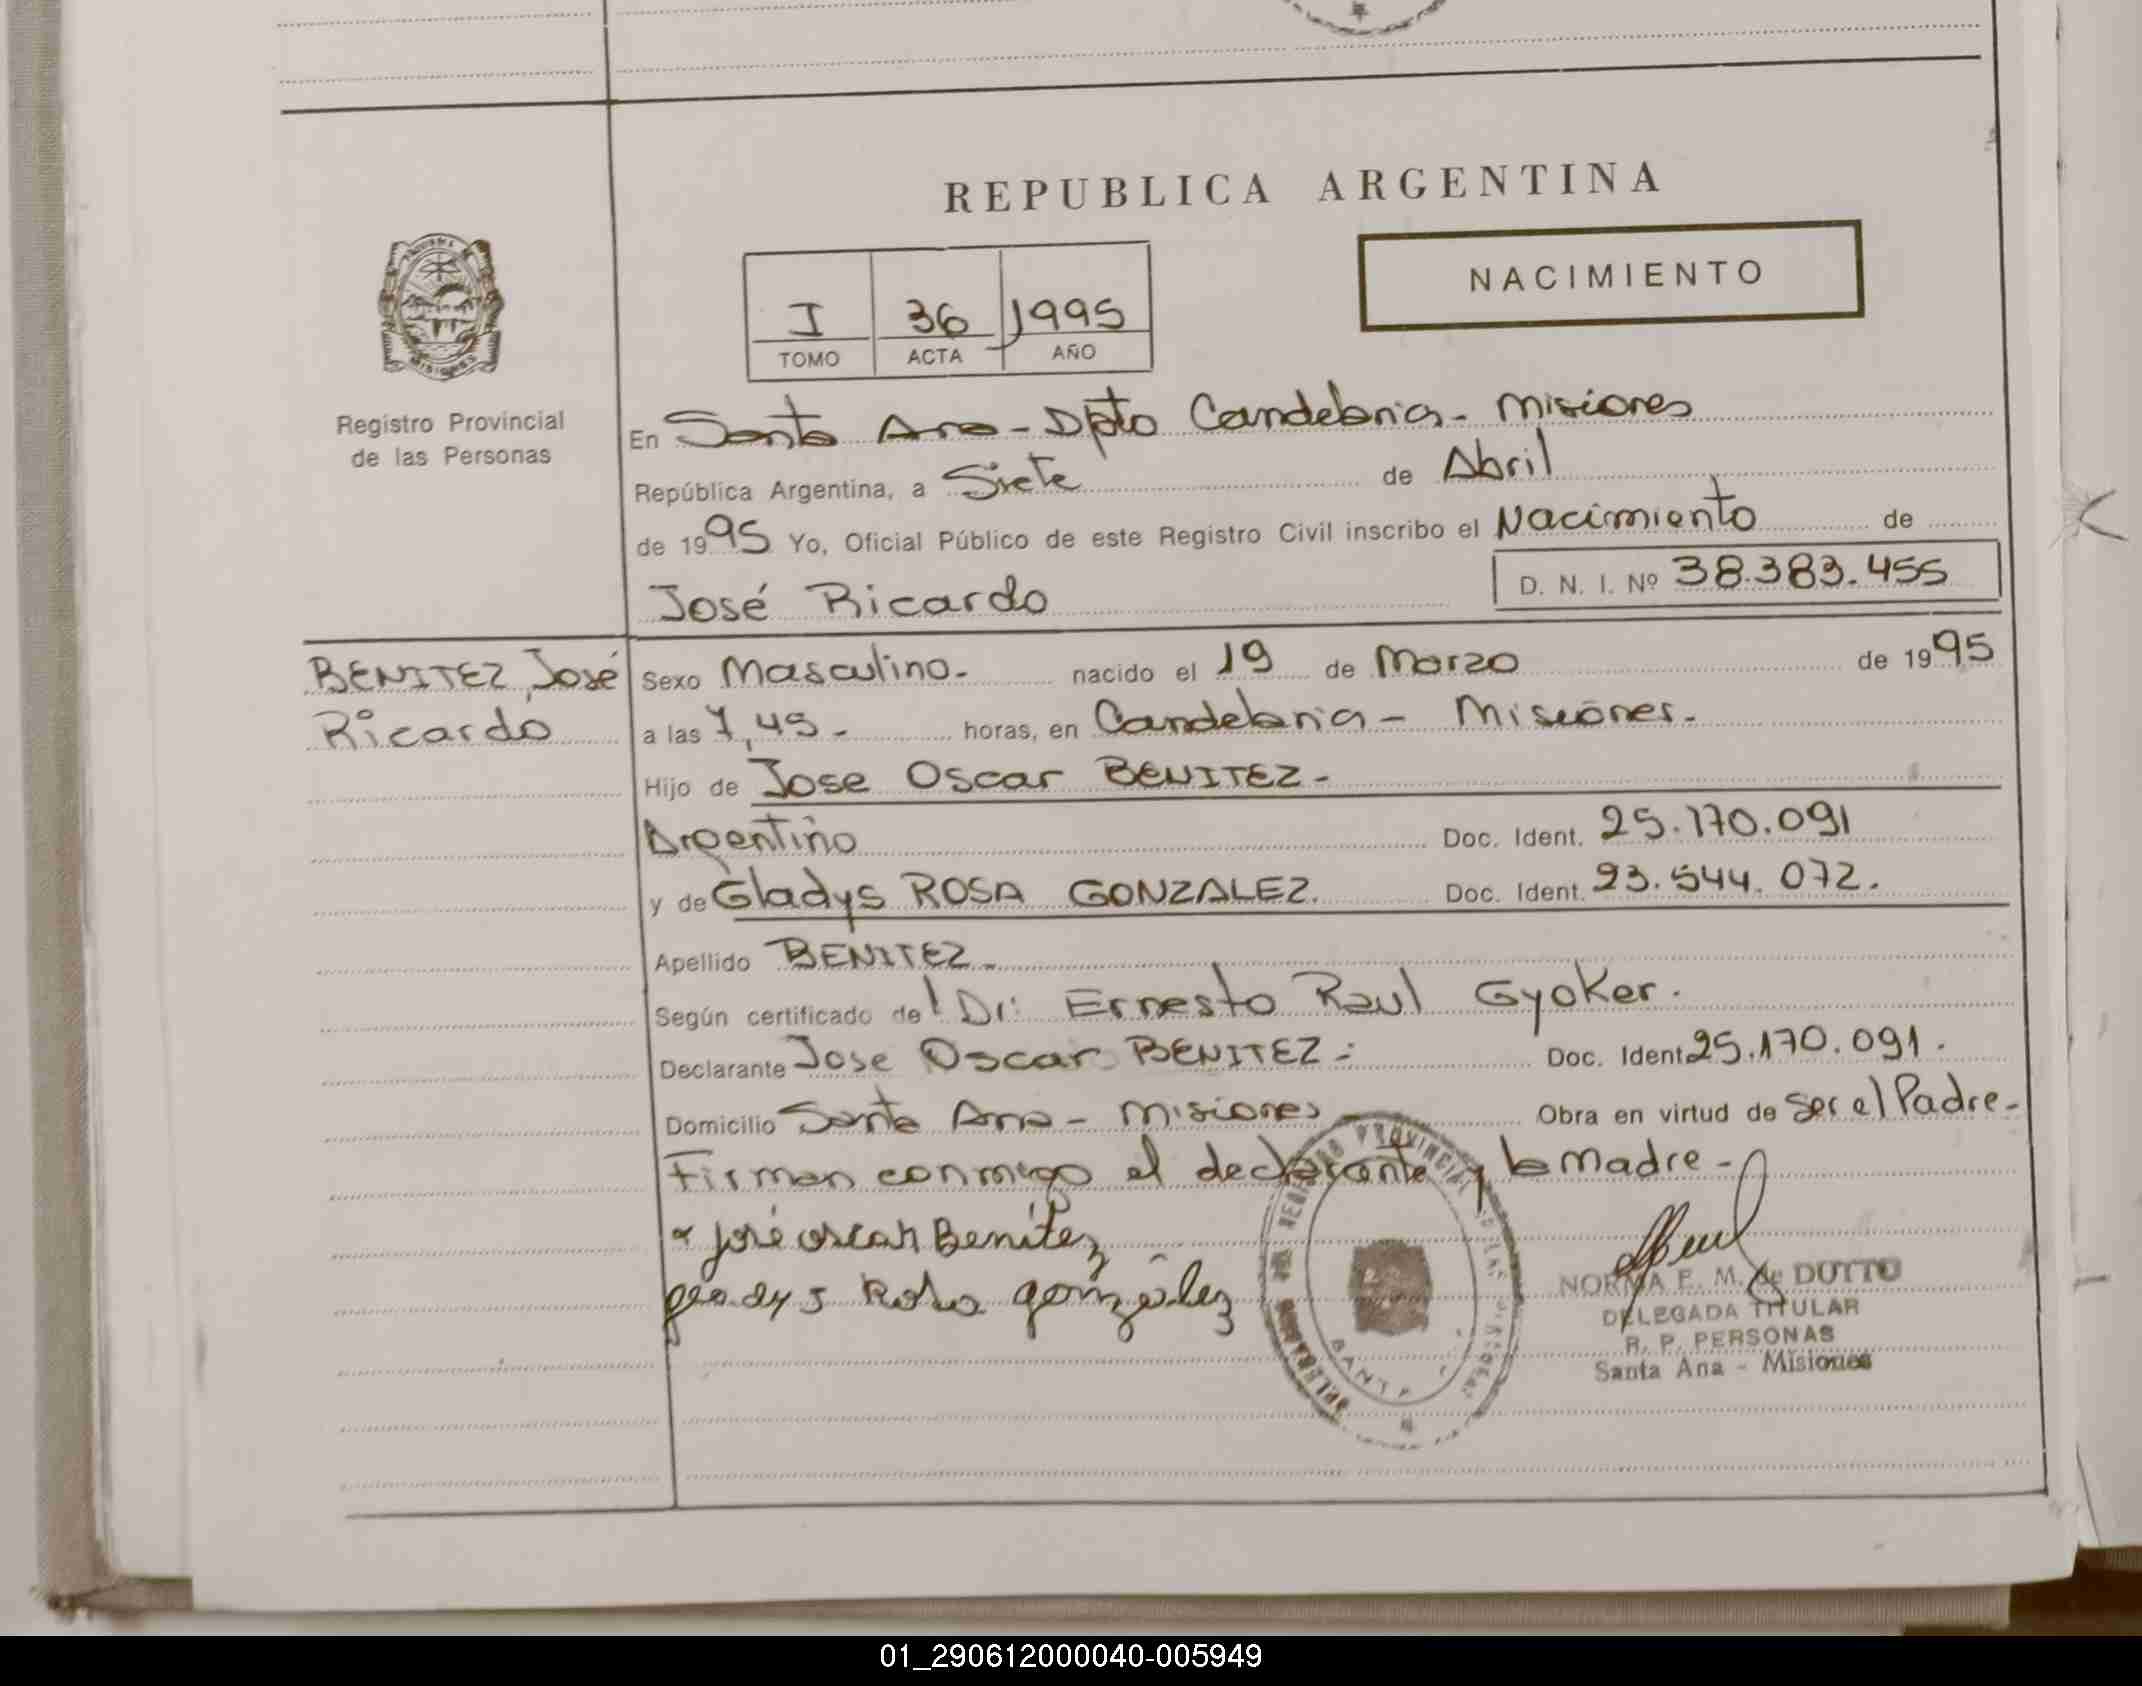 REPUBLICA ARGENTINA
NACIMIENTO
I 36 1995
TOMO ACTA AÑO
Registro Provincial
de las Personas
En Santa Ana - Dpto Candelaria - Misiones
República Argentina, a Siete de Abril
de 1995 Yo, Oficial Público de este Registro Civil inscribo el Nacimiento de
José Ricardo D. N. I. Nº 38.383.455
BENITEZ, José
Ricardo
Sexo Masculino. nacido el 19 de Marzo de 1995
a las 7,45 - horas, en Candelaria - Misiones.
Hijo de Jose Oscar BENITEZ -
Argentino Doc. Ident. 25.170.091
y de Gladys ROSA GONZALEZ. Doc. Ident. 23.544.072.
Apellido BENITEZ -
Según certificado de l Dr: Ernesto Raul Gyoker.
Declarante Jose Oscar BENITEZ - Doc. Ident 25.170.091.
Domicilio Santa Ana - Misiones Obra en virtud de Ser el Padre -
Firman conmigo el declarante y la Madre -
José oscar Benítez
gladys Rosa gonzález
NORMA E. M. de DUTTO
DELEGADA TITULAR
R. P. PERSONAS
Santa Ana - Misiones
01_290612000040-005949